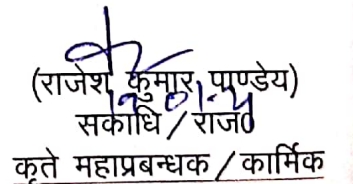 (राजेश कुमार पाण्डेय)
सकाधि / राज०
कृते महाप्रबन्धक / कार्मिक